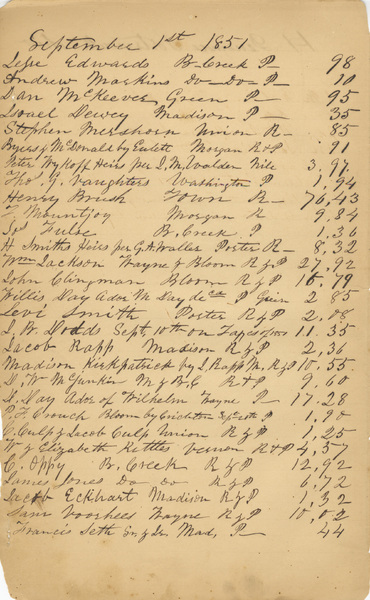 September 1st 1851
Edwards B. Creek P 98
Andrew Mackins Do Do P 10
Dan McKeever Green P 95
Israel Dewey Madison P 35
Stephen Mershorn Union R 85
Byers & McDonald by Eulett Morgan R & P 91
Peter Wykoff Heirs per I. M. Walden Nile 3,97
Thos G. Vaughters Washington P 1,94
Henry Brush Town R 76,43
Mountjoy Morgan R 9,84
Jas Fulse B. Creek P 1,36
H Smiths Heirs per G. A. Waller Porter R 8,32
Wm Jackson Wayne & Bloom R & P 27,92
John Clingman Bloom R & P 16,79
Willis Day Ador M Day decd P 2 85
Levi Smith Porter R & P 2,08
I. W. Dodds Sept. 10th on 11.35
Jacob Rapp Madison R & P 2,36
Madison Kirkpatrick by I. Rapp M, R & P 10.55
D. W. McGunkin M & B. C R & P 9,60
D. Day Ador of Wilhelm Wayne P 17.28
Crouch Bloom by P 1,90
Culp & Jacob Culp Union R & P 1,25
W & Elizabeth Kittles Vernon R & P 4,57
C. Oppy B. Creek R & P 12,92
James Jones Do Do R & P 6,72
Jacob Eckhart Madison R & P 1,32
Saml Voorhees Wayne R & P 10,02
Francis Seth Sr. & Jr. Mad, P 44